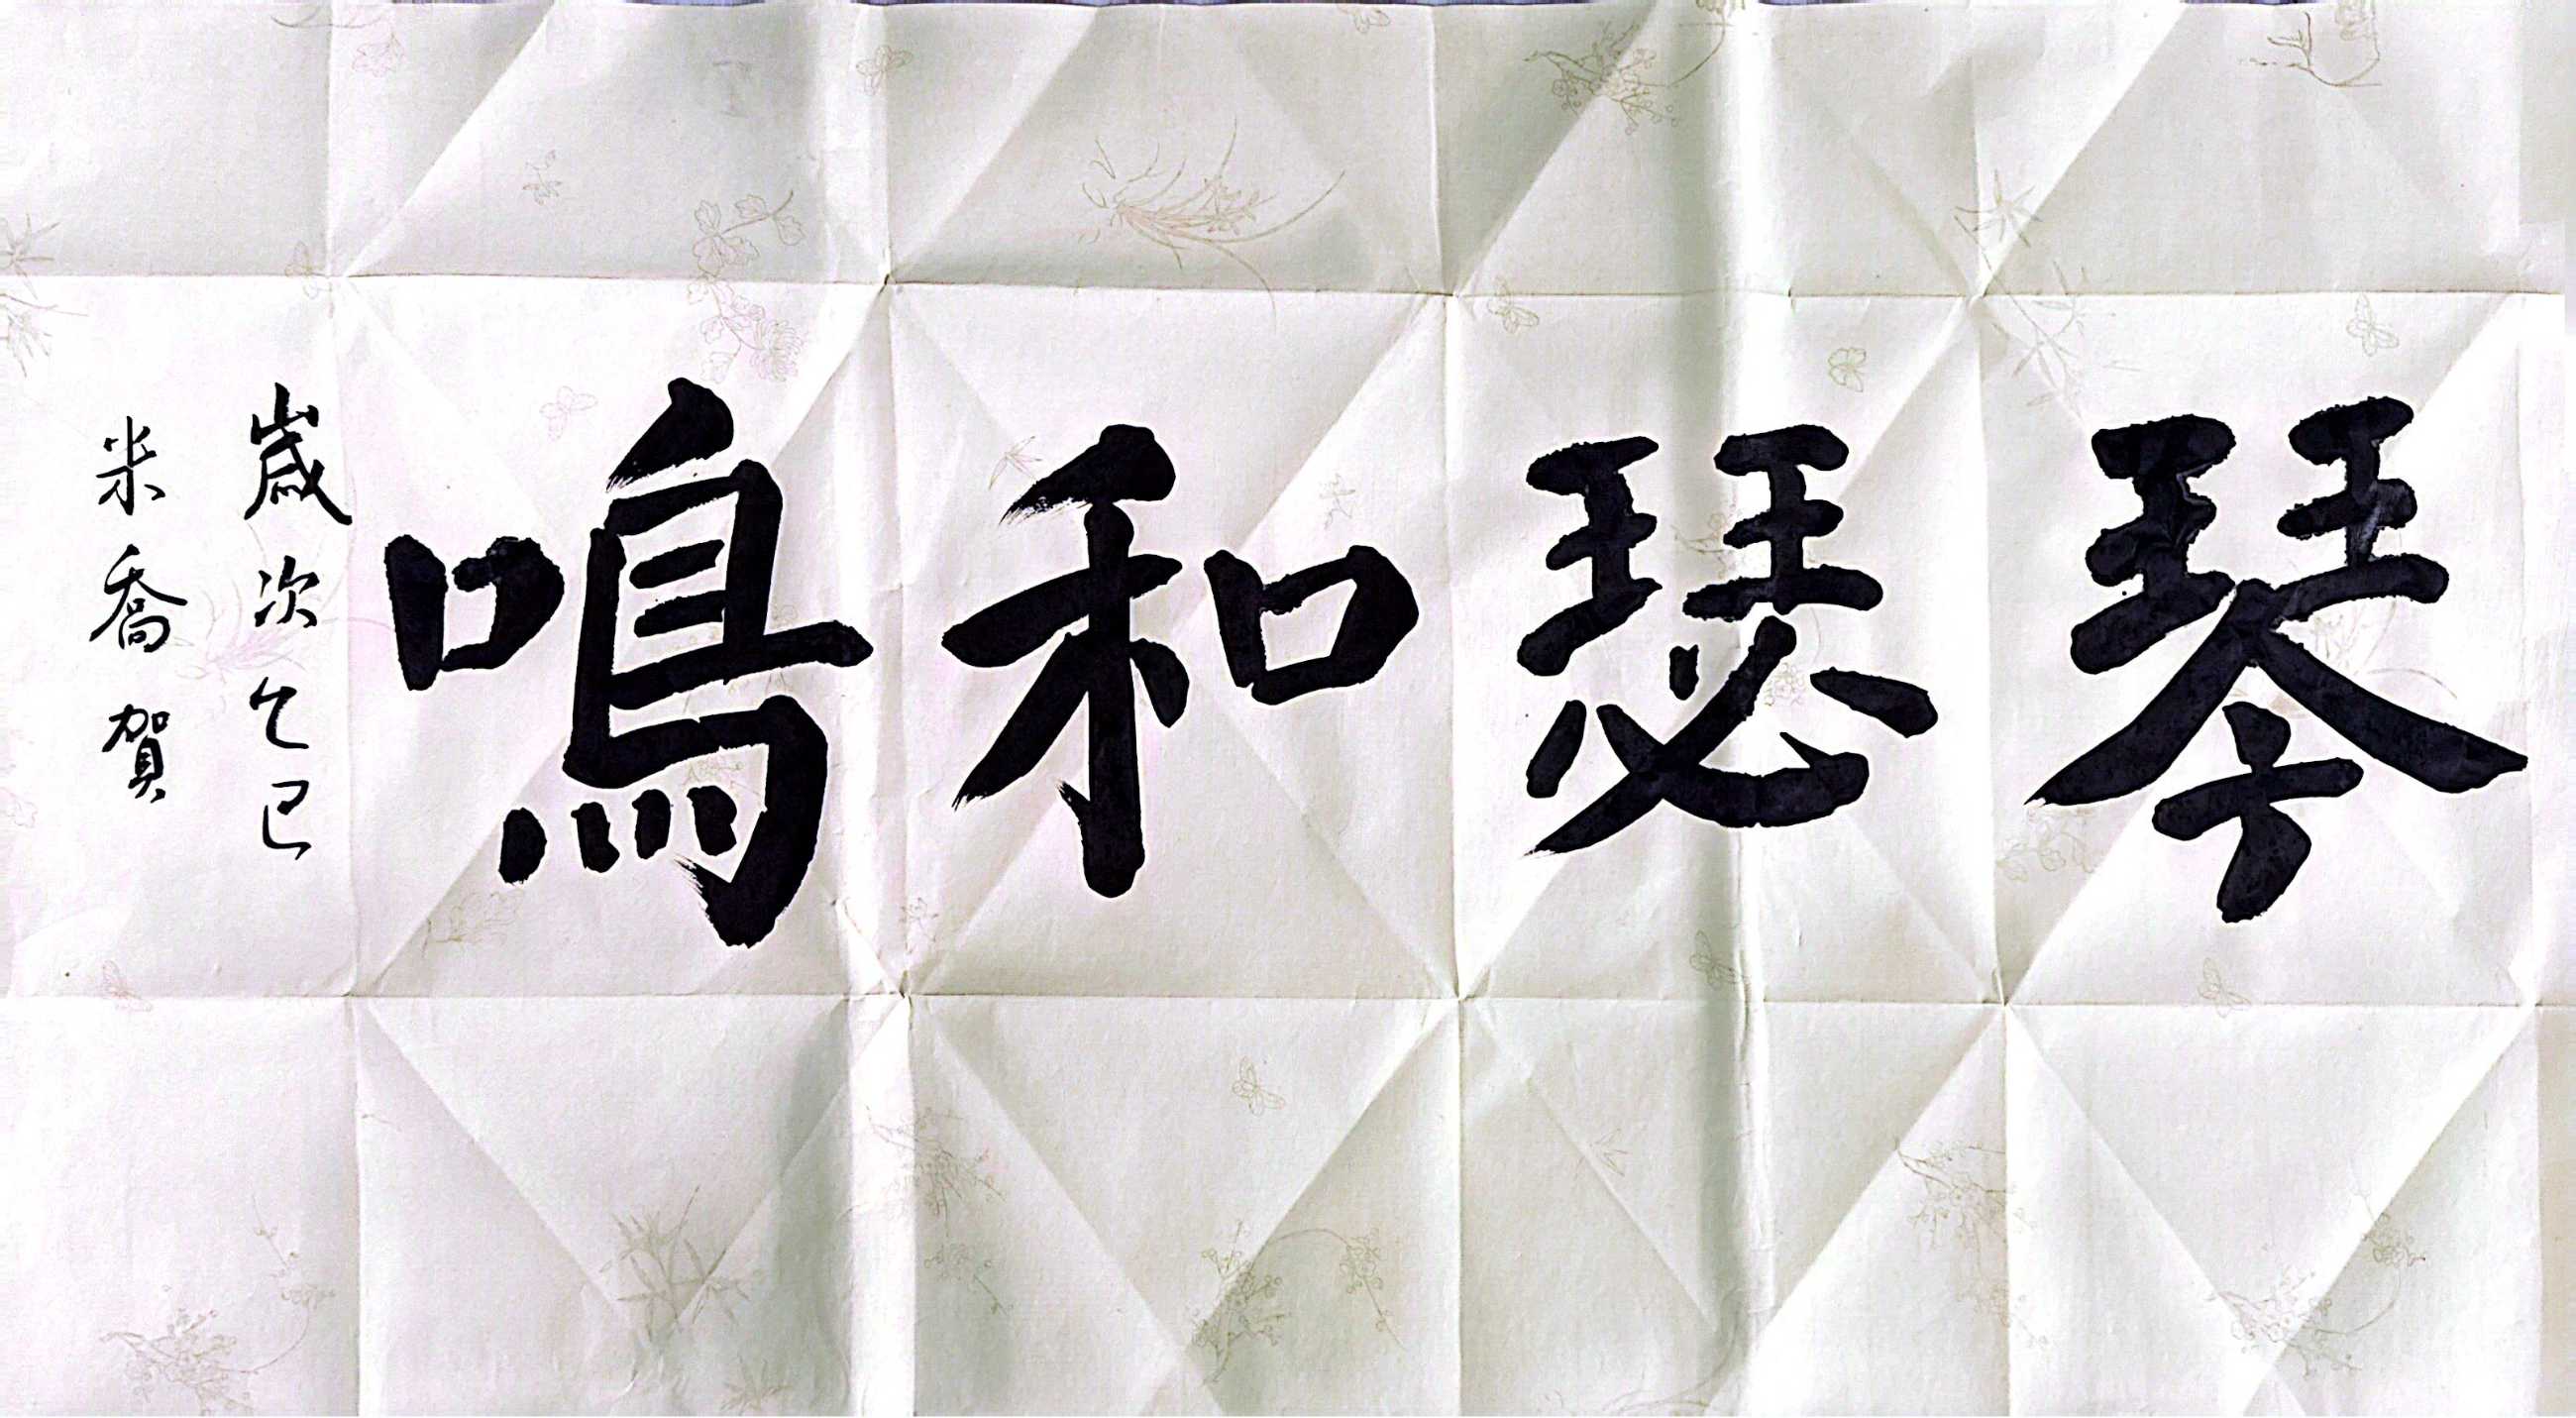 琴瑟和鳴
歲次乙巳
米喬賀